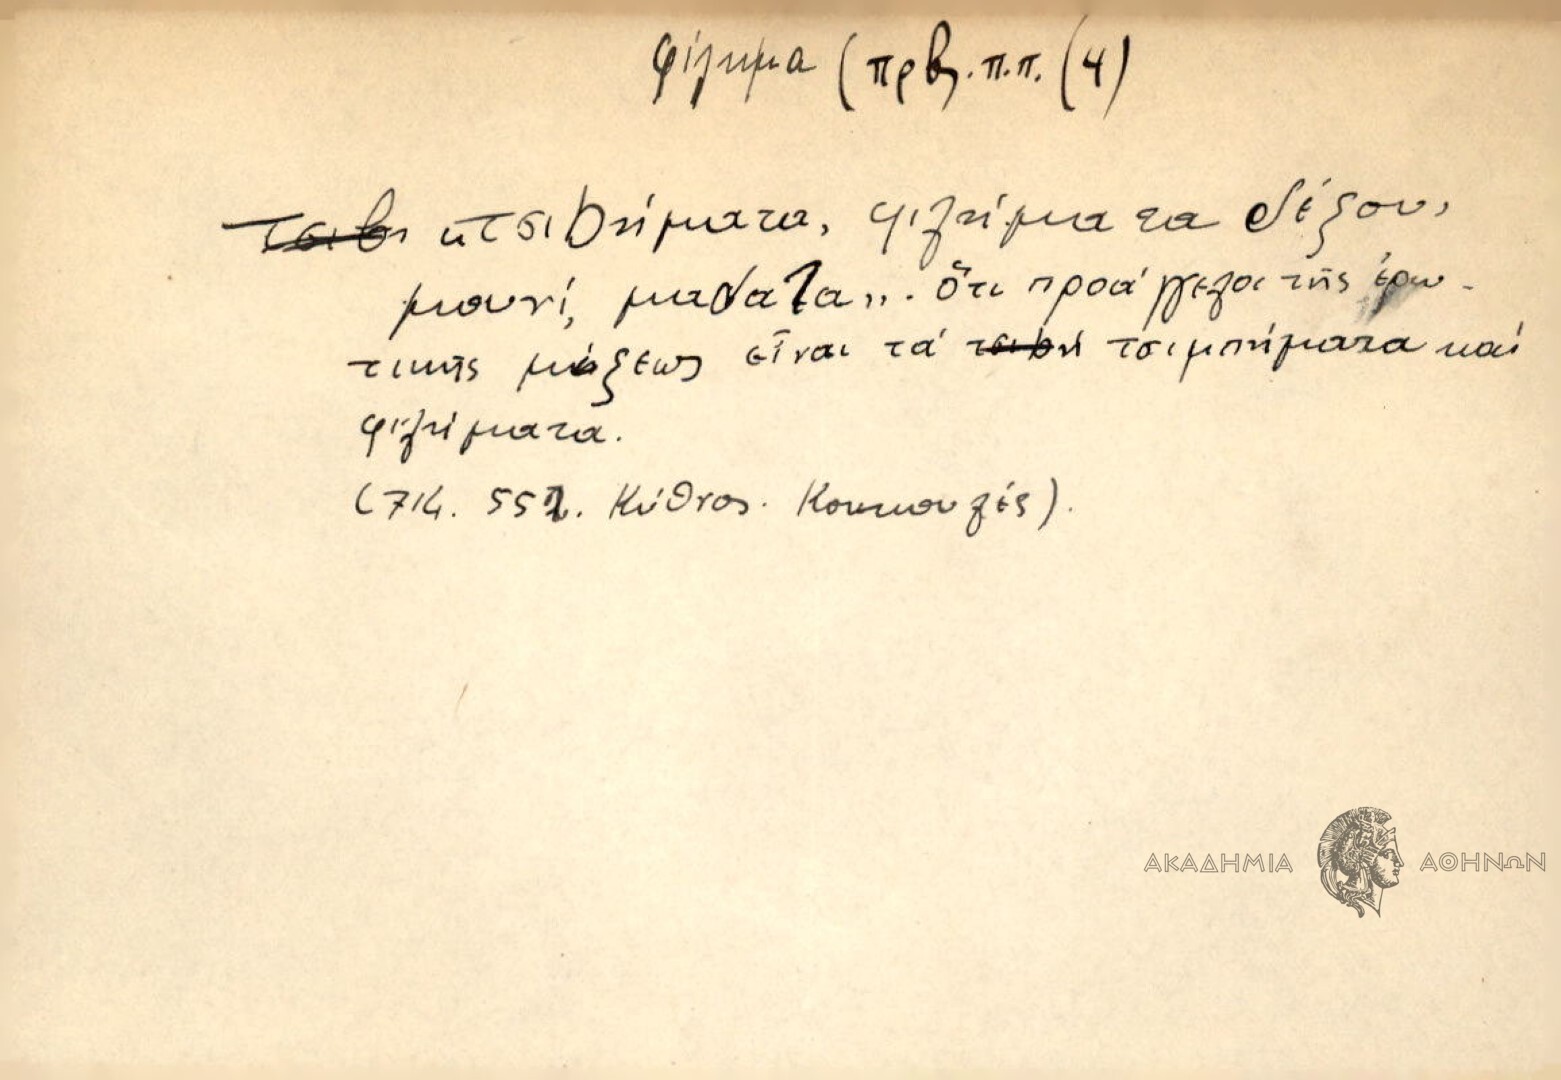 φίλημα (πρβ. π.π. (4)
"τσιbήματα, φιλήματα δέξου,
μουνί, μαdάτα". Ὅτι προάγγελοι τῆς ἐρω-
τικῆς μίξεως εἶναι τά τσιμπήματα καί
φιλήματα.
(714. 552. Κύθνος. Κουκουλές).
ΑΚΑΔΗΜΙΑ ΑΘΗΝΩΝ